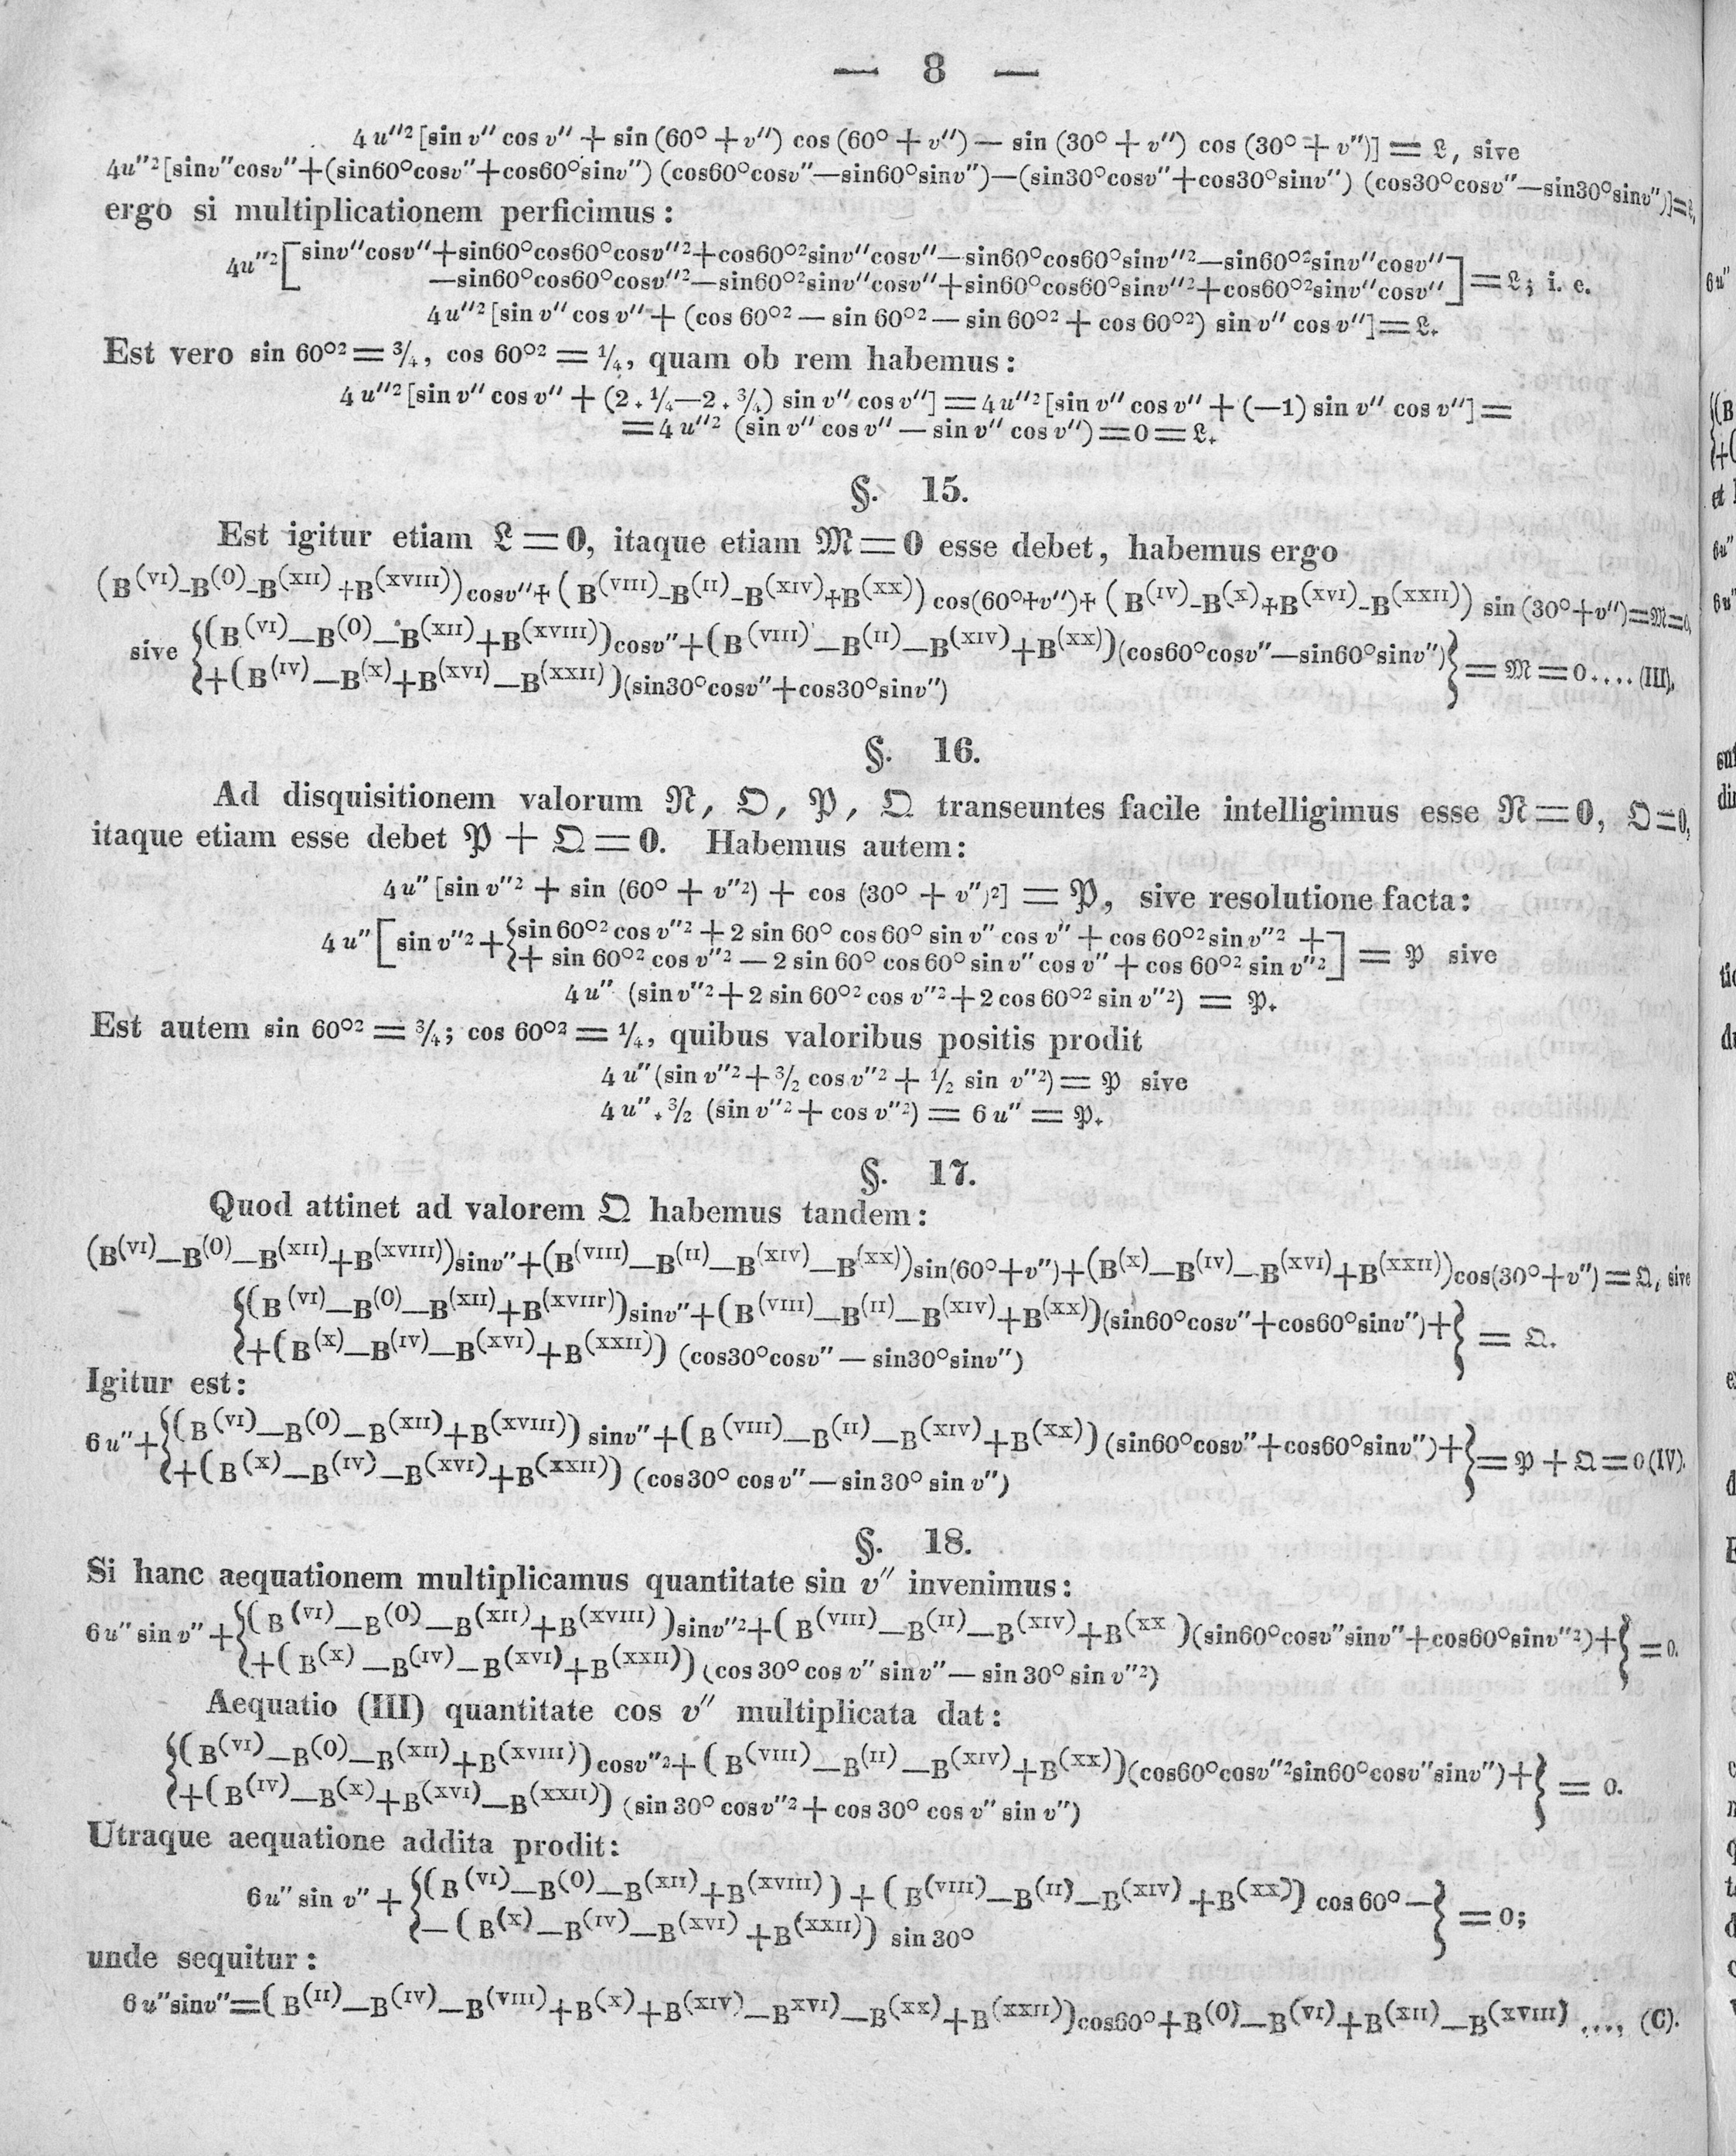 — 8 —
4 u″² [sin v″ cos v″ + sin (60° + v″) cos (60° + v″) — sin (30° + v″) cos (30° + v″)] = 𝔏, sive
4u″² [sinv″cosv″+(sin60°cosv″+cos60°sinv″) (cos60°cosv″—sin60°sinv″)—(sin30°cosv″+cos30°sinv″) (cos30°cosv″—sin30°sinv″)]=𝔏,
ergo si multiplicationem perficimus:
4u″² [ sinv″cosv″+sin60°cos60°cosv″²+cos60°²sinv″cosv″—sin60°cos60°sinv″²—sin60°²sinv″cosv″
—sin60°cos60°cosv″²—sin60°²sinv″cosv″+sin60°cos60°sinv″²+cos60°²sinv″cosv″ ] = 𝔏; i. e.
4u″² [sin v″ cos v″ + (cos 60°² — sin 60°² — sin 60°² + cos 60°²) sin v″ cos v″] = 𝔏.
Est vero sin 60°² = ³/₄, cos 60°² = ¹/₄, quam ob rem habemus:
4 u″² [sin v″ cos v″ + (2 . ¹/₄—2 . ³/₄) sin v″ cos v″] = 4 u″² [sin v″ cos v″ + (—1) sin v″ cos v″] =
= 4 u″² (sin v″ cos v″ — sin v″ cos v″) = 0 = 𝔏.
§. 15.
Est igitur etiam 𝔏 = 0, itaque etiam 𝔐 = 0 esse debet, habemus ergo
(B(VI)-B(0)-B(XII)+B(XVIII))cosv″+(B(VIII)-B(II)-B(XIV)+B(XX)) cos(60°+v″)+(B(IV)-B(X)+B(XVI)-B(XXII)) sin (30°+v″)=𝔐=0,
sive {(B(VI)—B(0)—B(XII)+B(XVIII))cosv″+(B(VIII)—B(II)—B(XIV)+B(XX))(cos60°cosv″—sin60°sinv″)
+(B(IV)—B(X)+B(XVI)—B(XXII))(sin30°cosv″+cos30°sinv″)} = 𝔐 = 0 .... (III).
§. 16.
Ad disquisitionem valorum 𝔑, 𝔒, 𝔓, 𝔔 transeuntes facile intelligimus esse 𝔑 = 0, 𝔒 = 0,
itaque etiam esse debet 𝔓 + 𝔔 = 0. Habemus autem:
4 u″ [sin v″² + sin (60° + v″²) + cos (30° + v″)²] = 𝔓, sive resolutione facta:
4 u″ [ sin v″² + {sin 60°² cos v″² + 2 sin 60° cos 60° sin v″ cos v″ + cos 60°² sin v″² +
+ sin 60°² cos v″² — 2 sin 60° cos 60° sin v″ cos v″ + cos 60°² sin v″² ] = 𝔓 sive
4 u″ (sin v″² + 2 sin 60°² cos v″² + 2 cos 60°² sin v″²) = 𝔓.
Est autem sin 60°² = ³/₄; cos 60°² = ¹/₄, quibus valoribus positis prodit
4 u″ (sin v″² + ³/₂ cos v″² + ¹/₂ sin v″²) = 𝔓 sive
4 u″ . ³/₂ (sin v″² + cos v″²) = 6 u″ = 𝔓.
§. 17.
Quod attinet ad valorem 𝔔 habemus tandem:
(B(VI)—B(0)—B(XII)+B(XVIII))sinv″+(B(VIII)—B(II)—B(XIV)—B(XX))sin(60°+v″)+(B(X)—B(IV)—B(XVI)+B(XXII))cos(30°+v″) = 𝔔, sive
{(B(VI)—B(0)—B(XII)+B(XVIII))sinv″+(B(VIII)—B(II)—B(XIV)+B(XX))(sin60°cosv″+cos60°sinv″)+
+(B(X)—B(IV)—B(XVI)+B(XXII)) (cos30°cosv″ — sin30°sinv″)} = 𝔔.
Igitur est:
6 u″+{(B(VI)—B(0)—B(XII)+B(XVIII)) sinv″+(B(VIII)—B(II)—B(XIV)+B(XX)) (sin60°cosv″+cos60°sinv″)+
+(B(X)—B(IV)—B(XVI)+B(XXII)) (cos30° cos v″—sin 30° sin v″)} = 𝔓 + 𝔔 = 0 (IV).
§. 18.
Si hanc aequationem multiplicamus quantitate sin v″ invenimus:
6 u″ sin v″ +{(B(VI)—B(0)—B(XII)+B(XVIII))sinv″²+(B(VIII)—B(II)—B(XIV)+B(XX )(sin60°cosv″sinv″+cos60°sinv″²)+
+(B(X) —B(IV)—B(XVI)+B(XXII)) (cos 30° cos v″ sin v″ — sin 30° sin v″²)} = 0.
Aequatio (III) quantitate cos v″ multiplicata dat:
{(B(VI)—B(0)—B(XII)+B(XVIII)) cosv″²+(B(VIII)—B(II) —B(XIV)+B(XX))(cos60°cosv″²sin60°cosv″sinv″)+
+(B(IV)—B(X)+B(XVI)—B(XXII)) (sin 30° cos v″² + cos 30° cos v″ sin v″)} = 0.
Utraque aequatione addita prodit:
6 u″ sin v″ + {(B(VI)—B(0)—B(XII)+B(XVIII)) + (B(VIII)—B(II)—B(XIV) +B(XX)) cos 60° —
— (B(X)—B(IV)—B(XVI) +B(XXII)) sin 30°} = 0;
unde sequitur:
6 u″sinv″=(B(II)—B(IV)—B(VIII)+B(X)+B(XIV)—BXVI)—B(XX)+B(XXII))cos60°+B(0)—B(VI)+B(XII)—B(XVIII) ...., (C).